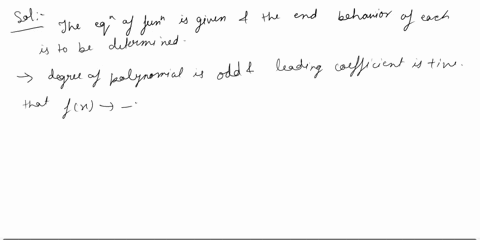 Sol:- The eqⁿ of funⁿ is given & the end behavior of each
is to be determined.
→ degree of polynomial is odd & leading coefficient is +ive.
that f(x) → −